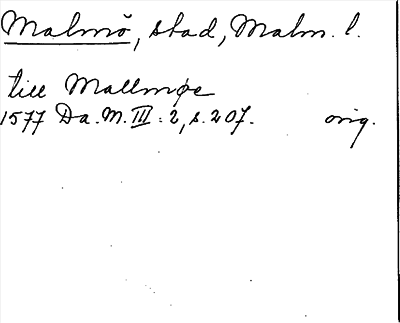 Malmö, stad, Malm. l.
till Mallmøe
1577 Da. M. III: 2, s. 207. orig.